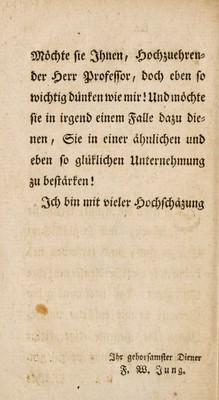 Möchte sie Ihnen, Hochzuehren-
der Herr Professor, doch eben so
wichtig dünken wie mir! Und möchte
sie in irgend einem Falle dazu die-
nen, Sie in einer ähnlichen und
eben so glüklichen Unternehmung
zu bestärken!
Ich bin mit vieler Hochschäzung
Ihr gehorsamster Diener
F. W. Jung.